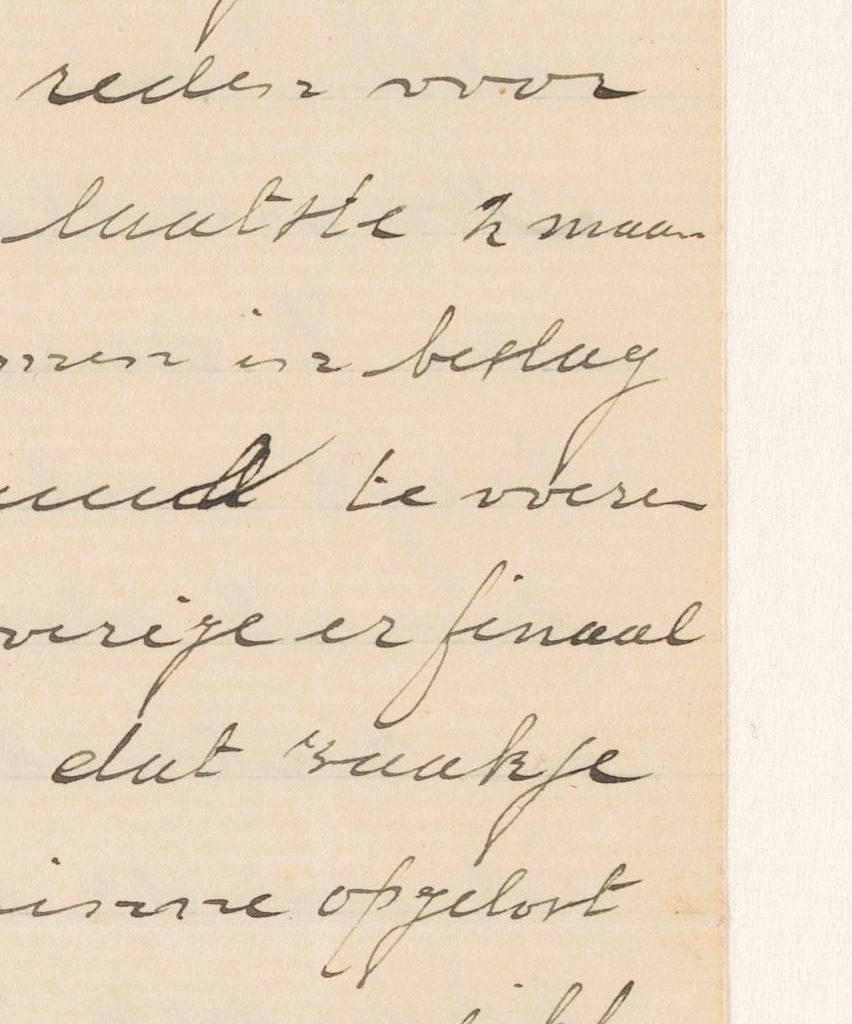 reden voor
laatste 2 maan
nnen in beslag
te voeren
verige er finaal
dat zaakje
inne opgelost